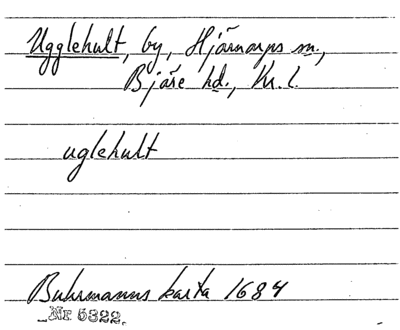 Ugglehult, by, Hjärnarps sn.,
Bjäre hd., Kr. l.
uglehult
Buhrmanns karta 1684
Nr 5322.